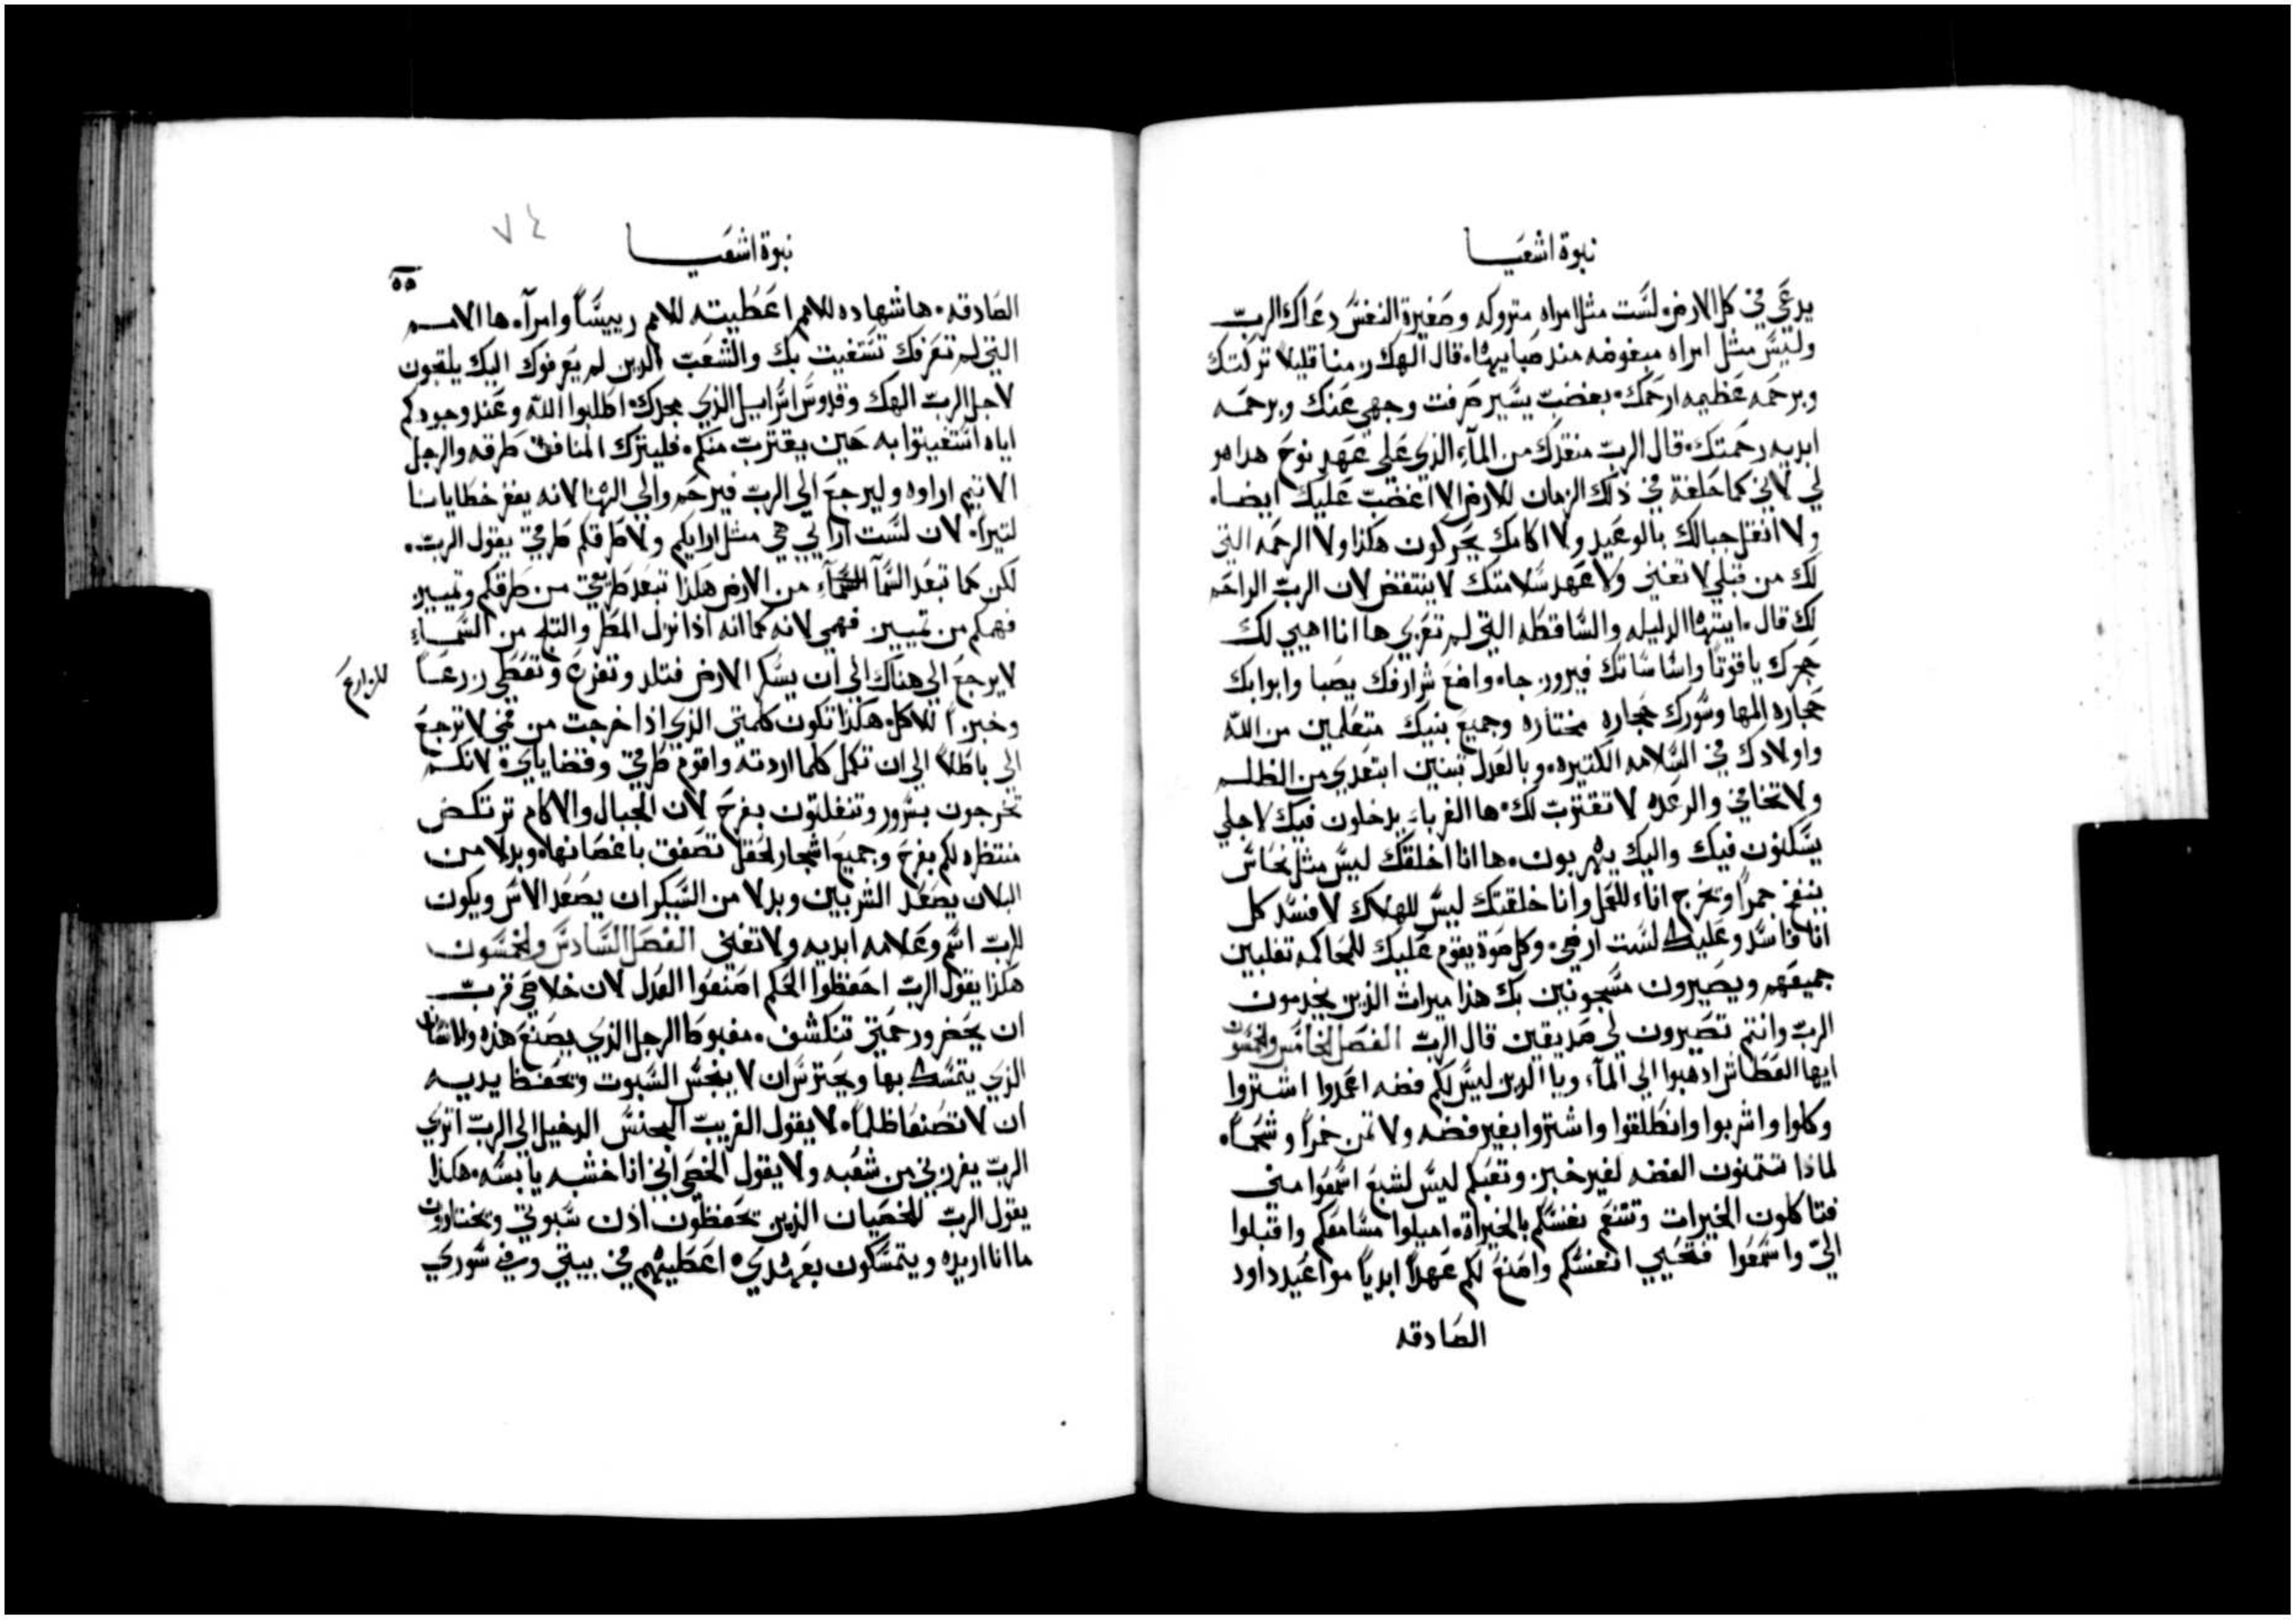 نبوة اشعيا
يدعي في كل الارض. لست مثل امراه متروكه وصغيرة النفس دعاك الرب
وليس مثل امراه مبغوضه منذ صبايها. قال الهك زمنا قليلا تركتك
وبرحمه عظيمه ارحمك. بغضب يسير صرفت وجهي عنك وبرحمه
ابديه رحمتك. قال الرب منقذك من المآء الذي علي عهد نوح هدا هو
لي لاني كما حلفة في ذلك الزمان للارض الا اغضب عليك ايضا.
ولا انقل جبالك بالوعيد ولا اكامك يحركون هكذا ولا الرحمه التي
لك من قبلي لا تفني ولا عهد سلامتك لا ينتقض لان الرب الراحم
لك قال. ايتها الدليله والساقطه التي لم تعزي ها انا اهيي لك
حجرك ياقوتاً واساساتك فيروزجاه واضع شرارفك يصبا وابوابك
حجاره المها وسورك حجاره مختاره وجميع بنيك متعلمين من الله
واولادك في السلامه الكتيره. وبالعدل تبنين ابتعدي من الظلم
ولا تخافي والرعده لا تقترب لك. ها الغرباء يدخلون فيك لاجلي
يسكنون فيك واليك يهربون. ها انا اخلقك ليس مثل نحاس
ينفخ جمراً وتخرج اناء للعمل وانا خلقتك ليس للهلاك لافسد كل
انا فاسد وعليك لست ارضي. وكل صوة يقوم عليك للمحاكمه تغلبين
جميعهم ويصيرون مسجونين بك هذا ميراث الذين يخدمون
الرب وانتم تصيرون لي صديقين قال الرب الفصل الخامس والخمسون
ايها العطاش ادهبوا الي المآء ويا الدين ليس لكم فضه اعمدوا اشتروا
وكلوا واشربوا وانطلقوا واشتروا بغير فضه ولا تمن خمراً وشحماً.
لماذا تتمنون الفضه لغير خبز وتعبكم ليس لشبع اسمعوا مني
فتاكلون الخيرات وتتنعم نفسكم بالخيراة. اميلوا مسامعكم واقبلوا
اليّ واسمعوا فتحيي انفسكم واصنع لكم عهداً ابدياً مواعيد داود
الصادقه
٧٤
نبوة اشعيا
٥٥
الصادقه. ها شهاده للامم اعطيته للامم رييساً وامراً. ها الامم
التي لم تعرفك تستغيت بك والشعب الدين لم يعرفوك اليك يلتجون
لاجل الرب الهك وقدوس اسراييل الذي مجدك. اطلبوا الله وعند وجودكم
اياه استغيتوا به حين يقترب منكم. فليترك المنافق طرقه والرجل
الاتيم اراوه وليرجع الي الرب فيرحم والي الهنا لانه يغفر خطايانا
كتيراً. لان لست اراي هي مثل ارايكم ولا طرقكم طرقي يقول الرب.
لكن كما تبعد السمآ من الارض هكذا تبعد طريقي من طرقكم وتمييز
فهمكم من تمييز فهمي لانه كما انه اذا نزل المطر والتلج من السماء
لا يرجع الي هناك الي ان يسكر الارض فتلد وتفرع وتعطي زرعاً
للزارع
وخبزاً للاكل. هكذا تكون كلمتي الذي اذا خرجت من فمي لا ترجع
الي باطلاً الي ان تكمل كلما اردته واقوم طرقي وقضاياي. لانكم
تخرجون بسرور وتنفلتون بفرح لان الجبال والاكام ترتكض
منتظره لكم بفرح وجميع اشجار الحقل تصفق باغصانها. وبدلا من
البلان يصعد الشربين وبدلا من السيكران يصعد الاس ويكون
للرب اسم وعلامه ابديه ولا تفني الفصل السادس والخمسون
هكذا يقول الرب احفظوا الحكم اصنعوا العدل لان خلاصي قرب
ان يحضر ورحمتي تنكشف. مغبوطا الرجل الذي يصنع هذه والانسان
الذي يتمسك بها ويحترس ان لا ينجس السبوت ويحفظ يديه
ان لا تصنعا ظلماً. لا يقول الغريب الجنس الدخيل الي الرب اتري
الرب يفرزني من شعبه ولا يقول الخصي اني انا خشبه يابسه. هكذا
يقول الرب للخصيان الذين يحفظون اذن سبوتي ويختارون
ما انا اريده ويتمسكون بعهدي. اعطيهم في بيتي وفي سوري